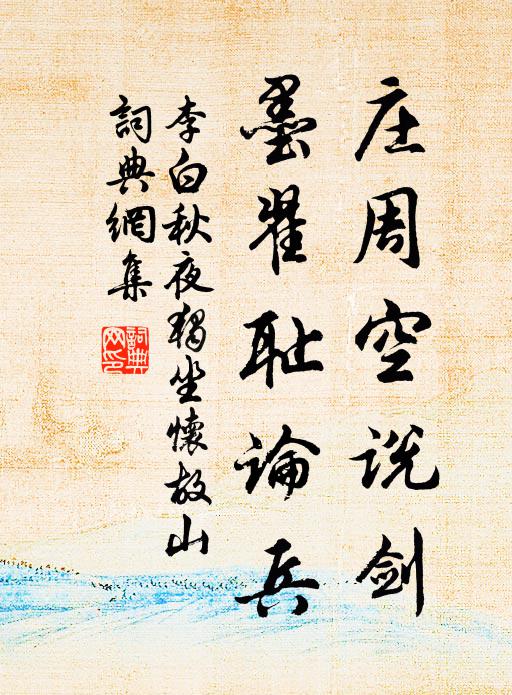 庄周空说剑
墨翟耻論兵
李白秋夜独坐懷故山
詞典網集
詞典
网印